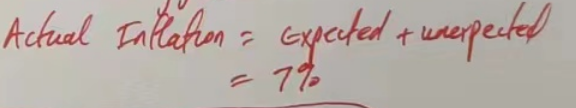 Actual Inflation = Expected + unexpected
= 7%